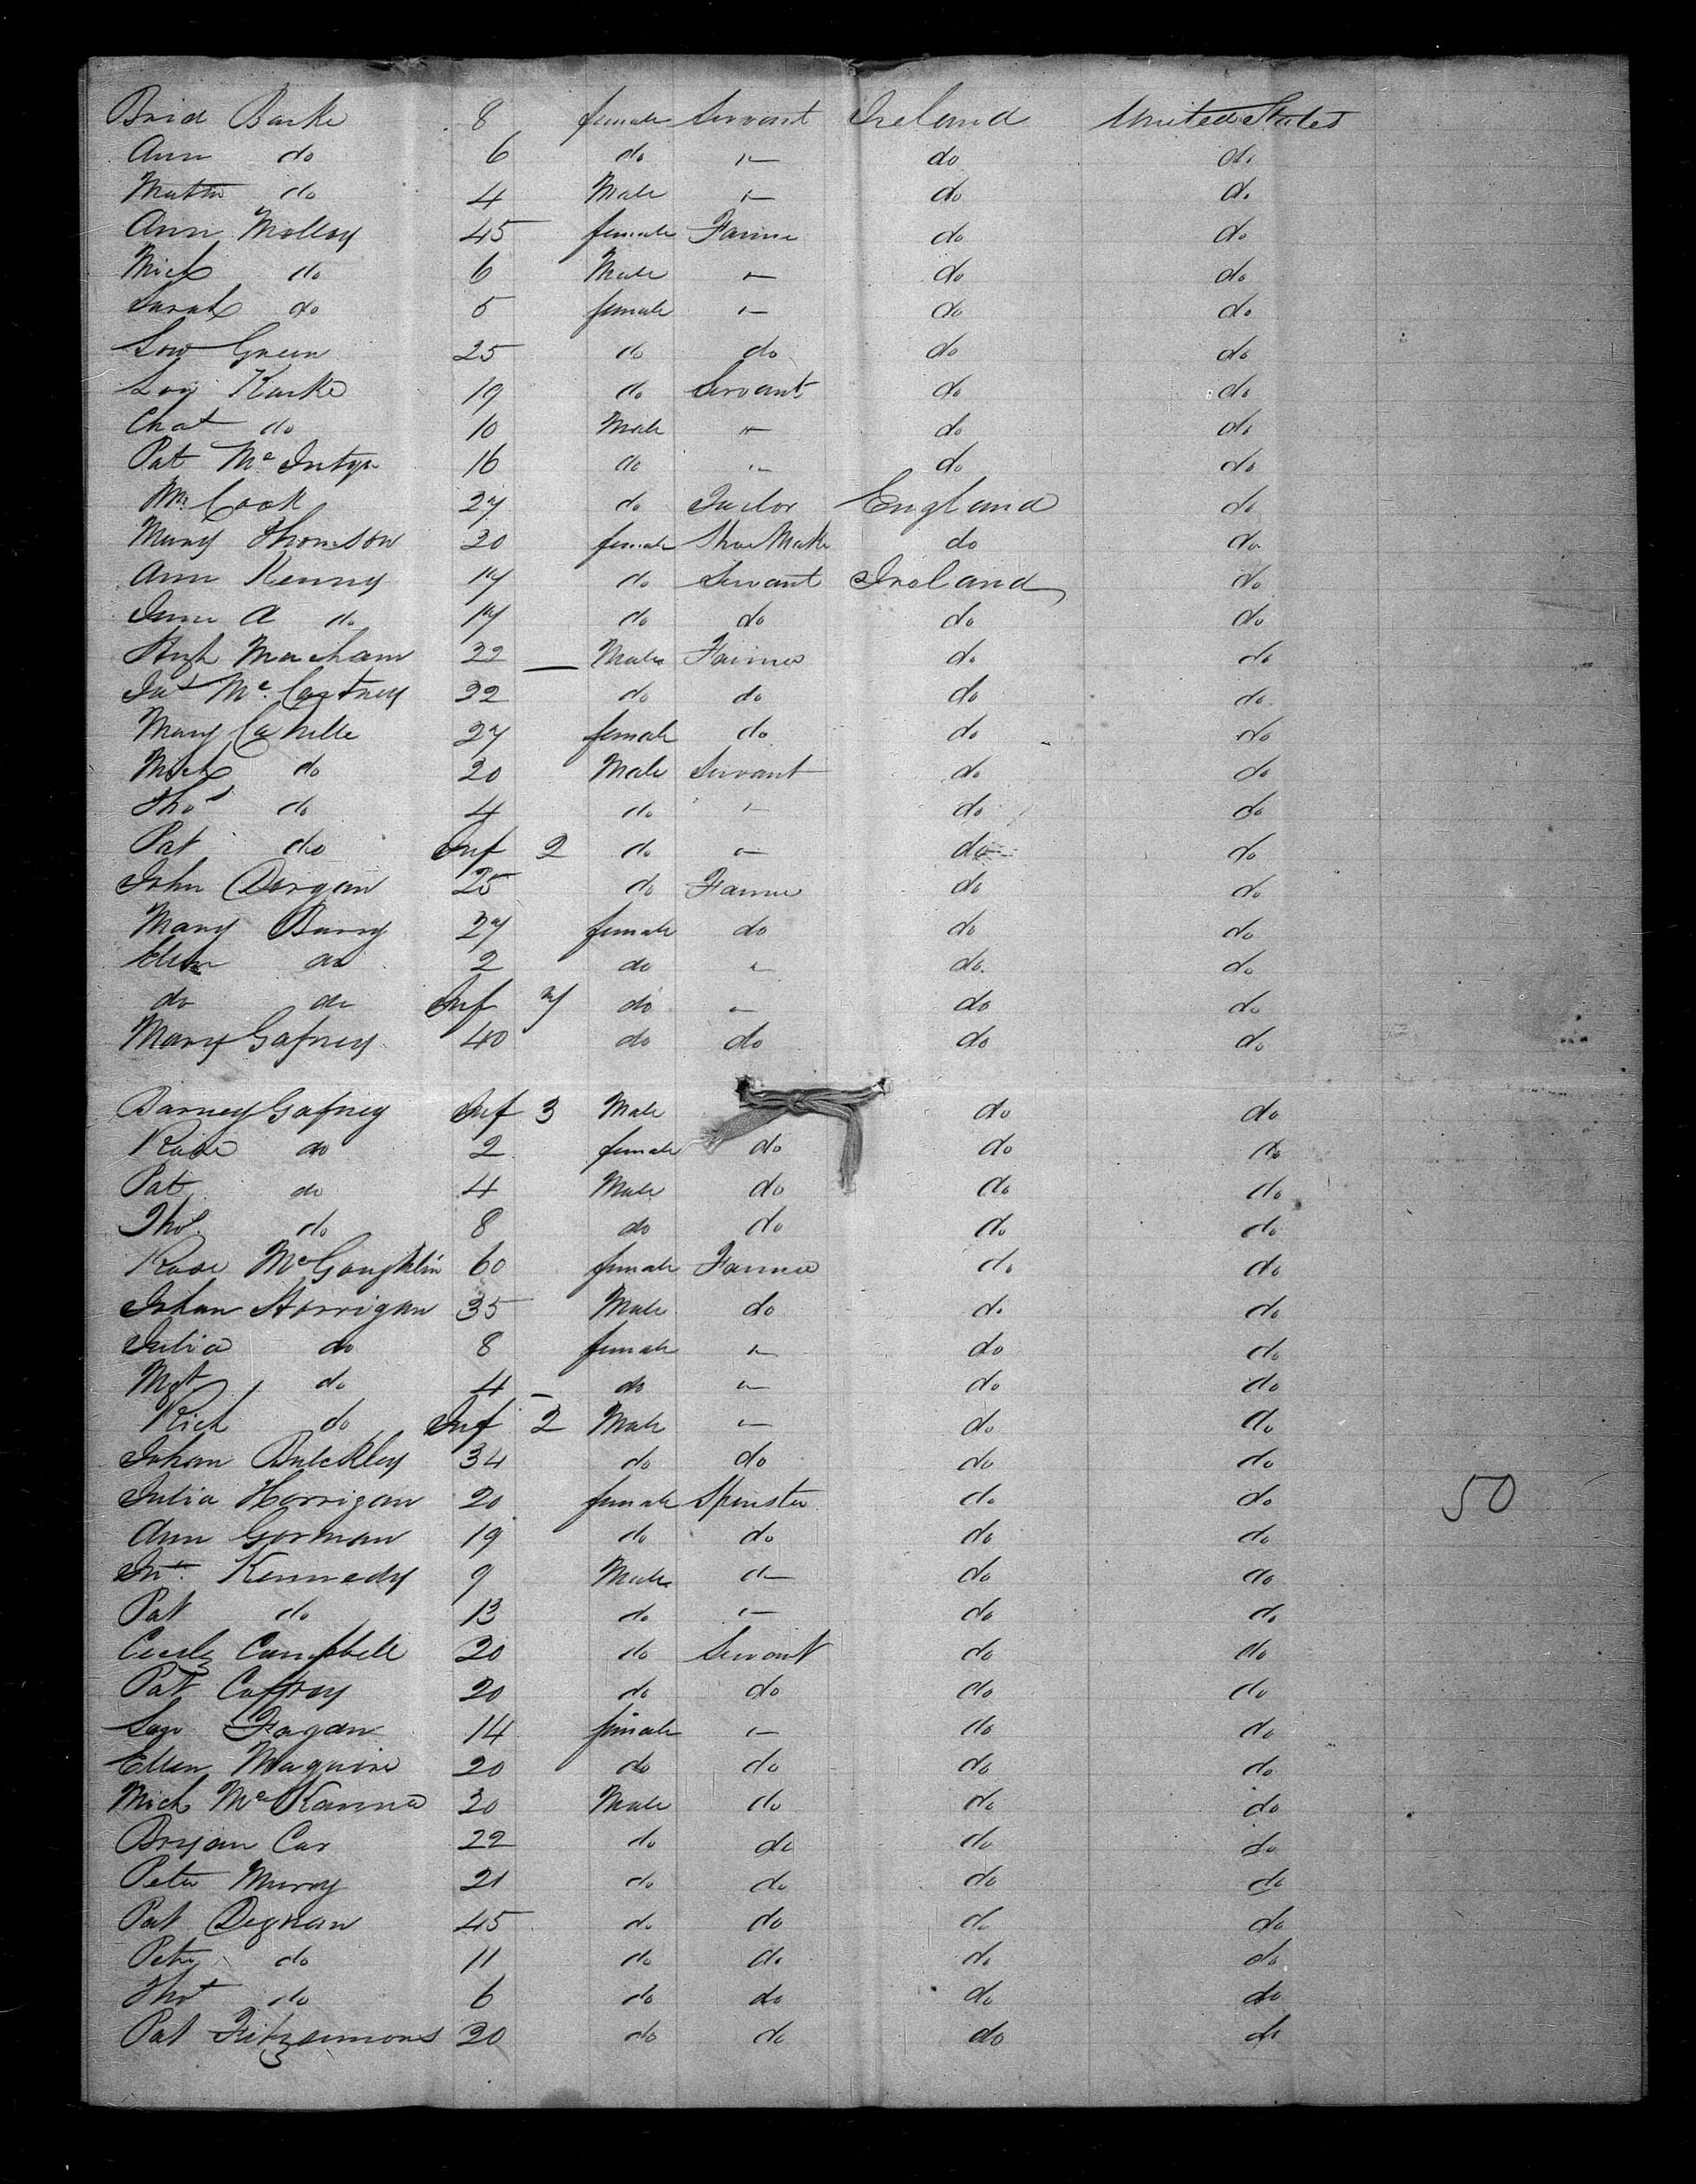 Brid Burke 8 female Servant Ireland United States
Ann do 6 do " do do
Martin do 4 Male " do do
Ann Molloy 45 female Farme do do
Mich do 6 Male " do do
Sarah do 5 female " do do
Green 25 do do do do
19 do Servant do do
do 10 Male " do do
Pat Mc Intyre 16 do " do do
Wm Cook 27 do England do
Mary Thomson 20 female Shoe Make do do
Ann Kenny 17 do Servant Ireland do
Jane A do 17 do do do do
Hugh 22 — Male Farmer do do
Jas Mc Cartney 22 do do do do
Mary Cahille 27 female do do do
Mich do 20 Male Servant do do
Thos do 4 do " do do
Pat do Inf 2 do " do do
John Dorgan 25 do Farme do do
Mary Barry 27 female do do do
Ellen do 2 do " do do
do do Inf 7 do " do do
Mary Gafney 40 do do do do
Barney Gafney Inf 3 Male do do
Rose do 2 female do do do
Pat do 4 Male do do do
Thos do 8 do do do do
Rose McGoughlin 60 female Farmer do do
Johan Horrigan 35 Male do do do
Julia do 8 female " do do
Mgt do 4 — do " do do
Rich do Inf 2 Male " do do
Johan Bulckley 34 do do do do
Julia Horrigan 20 female Spinster do do 50
Ann Gorman 19 do do do do
Kennedy 9 Male " do do
Pat do 13 do " do do
Campbell 20 do Servant do do
Pat Caffrey 20 do do do do
Fagan 14 female " do do
Ellen Maguire 20 do do do do
Mich McKanna 20 Male do do do
Bryan Car 22 do do do do
Peter Murry 21 do do do do
Pat Degnan 45 do do do do
Peter do 11 do do do do
Thos do 6 do do do do
Pat Fitzsimons 20 do do do do